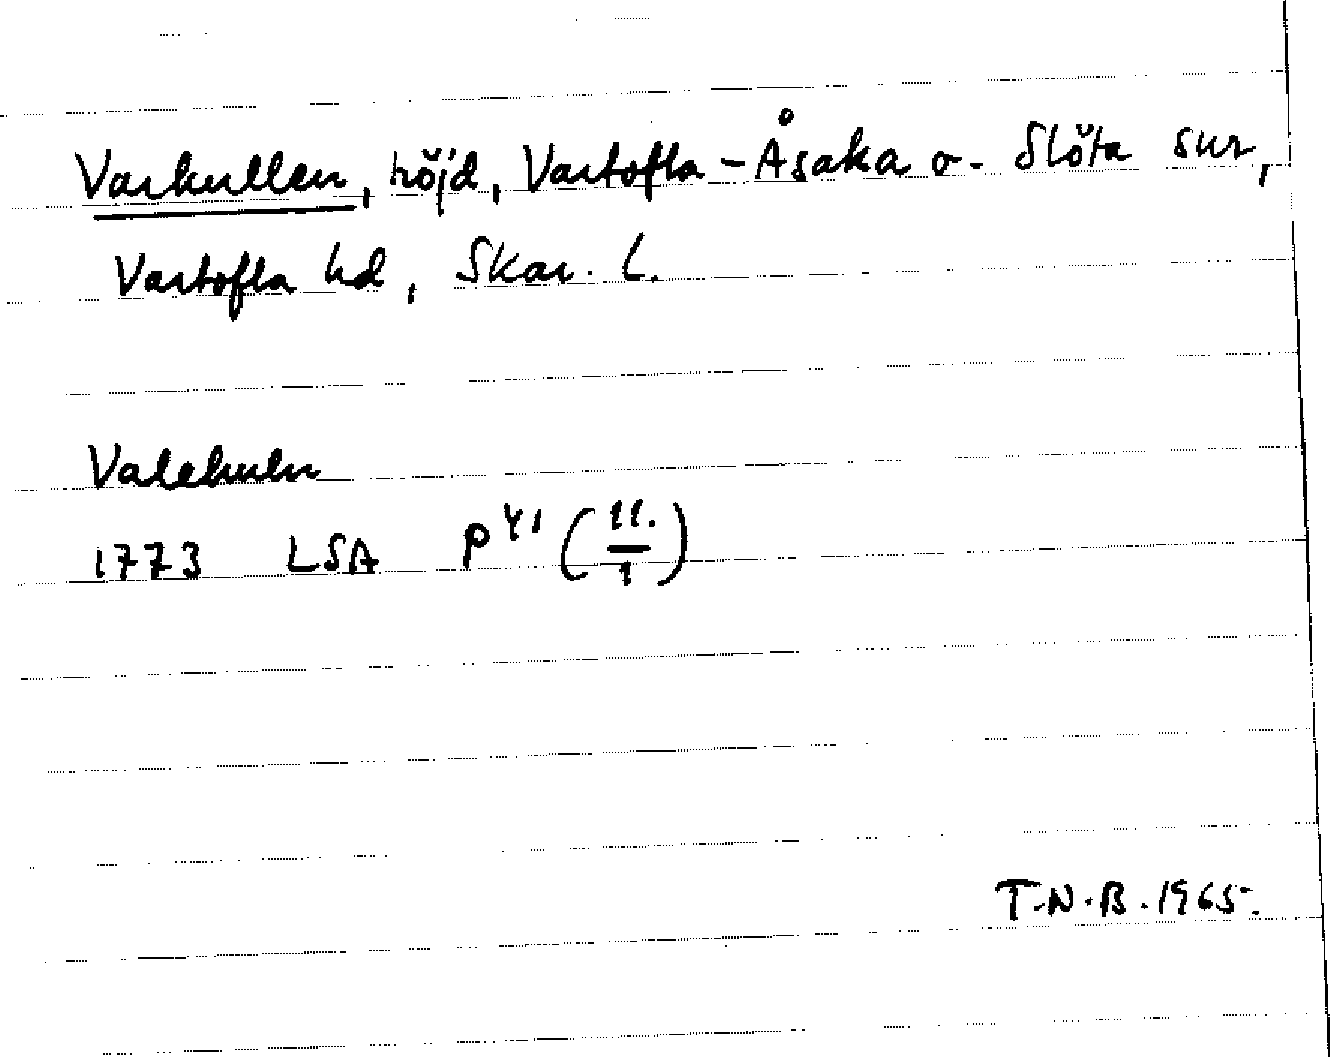 Varkullen, höjd, Vartofta-Åsaka o. Slöta snr,
Vartofta hd, Skar. l.
Valekuln
1773 LSA P 41 (11./1)
T.N.B. 1965.